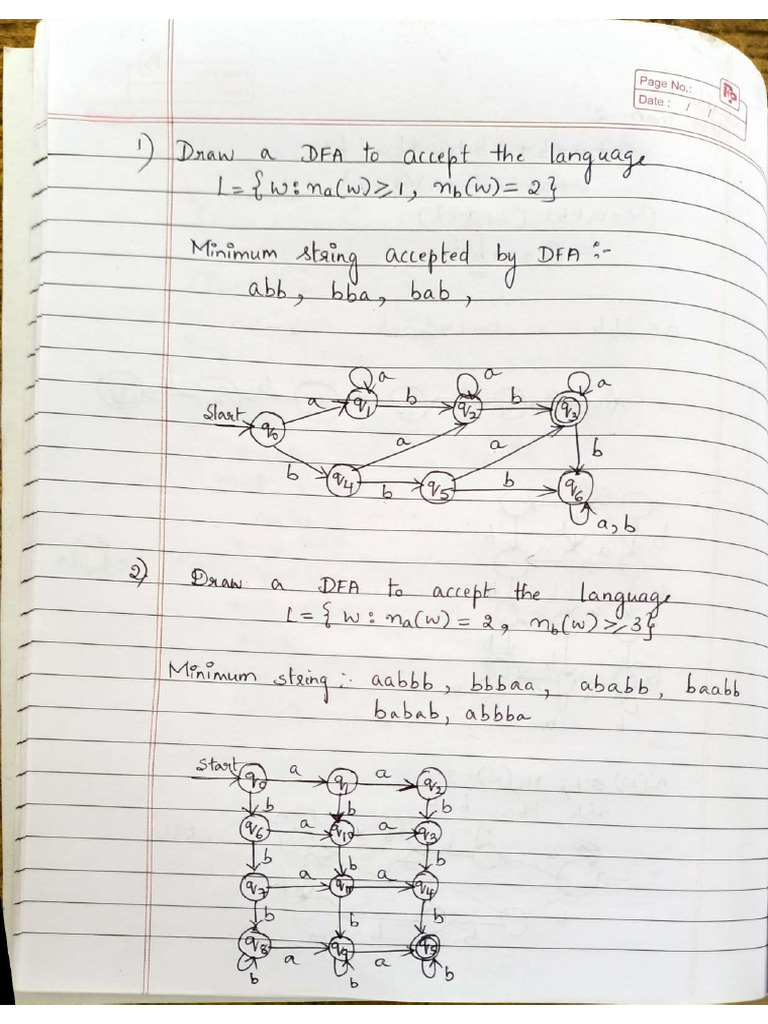 Page No.:
Date : / /
1) Draw a DFA to accept the language
L = { w : na(w) ≥ 1, nb(w) = 2 }
Minimum string accepted by DFA :-
abb, bba, bab,
a a a
Start q0 a q1 b q2 b q3
a a b
b q4 b q5 b q6
a, b
2) Draw a DFA to accept the language
L = { w : na(w) = 2, nb(w) ≥ 3 }
Minimum string :- aabbb, bbbaa, ababb, baabb
babab, abbba
Start q0 a q1 a q2
b b b
q6 a q10 a q3
b b b
q7 a q11 a q4
b b b
q8 a q9 a q5
b b b